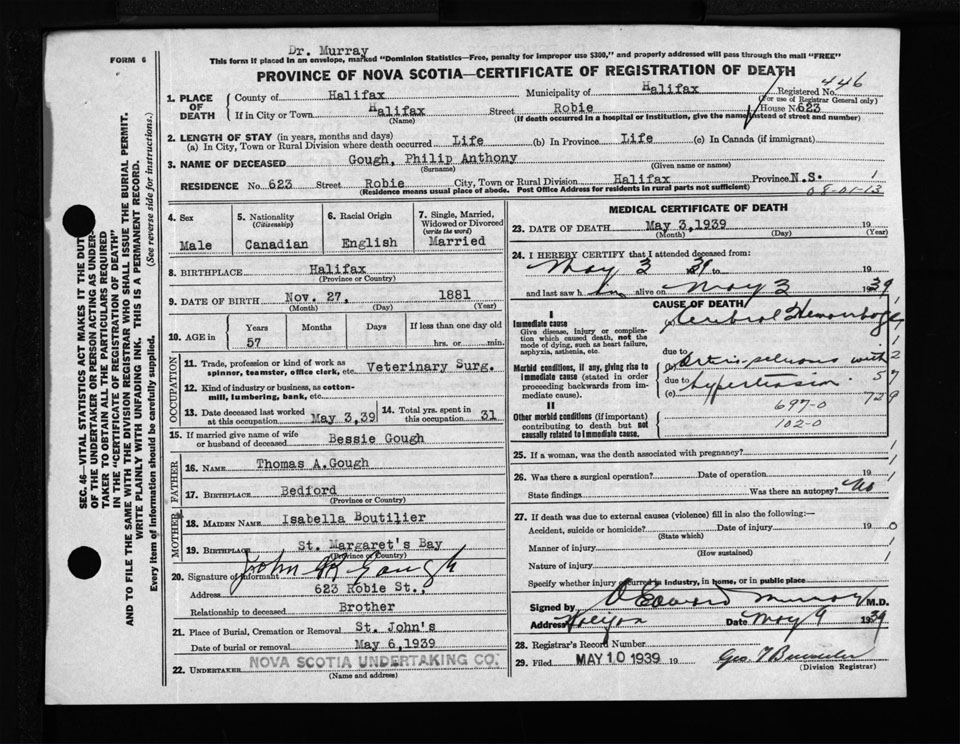 Dr. Murray
FORM 6
This form if placed in an envelope, marked "Dominion Statistics—Free, penalty for improper use $300," and properly addressed will pass through the mail "FREE"
PROVINCE OF NOVA SCOTIA—CERTIFICATE OF REGISTRATION OF DEATH
446
1. PLACE OF DEATH
County of Halifax Municipality of Halifax Registered No.
(For use of Registrar General only)
If in City or Town Halifax Street Robie House No. 623
(Name) (If death occurred in a hospital or institution, give the name instead of street and number)
2. LENGTH OF STAY (in years, months and days)
(a) In City, Town or Rural Division where death occurred Life (b) In Province Life (c) In Canada (if immigrant)
3. NAME OF DECEASED Gough, Philip Anthony
(Surname) (Given name or names)
RESIDENCE No. 623 Street Robie City, Town or Rural Division Halifax Province N.S. 1
(Residence means usual place of abode. Post Office Address for residents in rural parts not sufficient) 08-01-13
4. Sex
Male
5. Nationality
(Citizenship)
Canadian
6. Racial Origin
English
7. Single, Married, Widowed or Divorced
(write the word)
Married
8. BIRTHPLACE Halifax
(Province or Country)
9. DATE OF BIRTH Nov. 27, 1881
(Month) (Day) (Year)
10. AGE in Years Months Days If less than one day old
57 hrs. or min.
OCCUPATION
11. Trade, profession or kind of work as spinner, teamster, office clerk, etc. Veterinary Surg.
12. Kind of industry or business, as cotton-mill, lumbering, bank, etc.
13. Date deceased last worked at this occupation May 3,39
14. Total yrs. spent in this occupation 31
15. If married give name of wife or husband of deceased Bessie Gough
FATHER
16. NAME Thomas A.Gough
17. BIRTHPLACE Bedford
(Province or Country)
MOTHER
18. MAIDEN NAME Isabella Boutilier
19. BIRTHPLACE St. Margaret's Bay
(Province or Country)
20. Signature of informant John R Gough
Address 623 Robie St.,
Relationship to deceased Brother
21. Place of Burial, Cremation or Removal St. John's
Date of burial or removal May 6,1939
22. UNDERTAKER NOVA SCOTIA UNDERTAKING CO.
(Name and address)
MEDICAL CERTIFICATE OF DEATH
23. DATE OF DEATH May 3,1939 19
(Month) (Day) (Year)
24. I HEREBY CERTIFY that I attended deceased from:
May 3 39 to 19
and last saw him alive on May 3 1939
CAUSE OF DEATH
I
Immediate cause
Give disease, injury or complication which caused death, not the mode of dying, such as heart failure, asphyxia, asthenia, etc.
(a) Cerebral Hemorrhage
due to
Morbid conditions, if any, giving rise to immediate cause (stated in order proceeding backwards from immediate cause).
(b) with
due to
(c) hypertension
II
Other morbid conditions (if important) contributing to death but not causally related to immediate cause.
697-0
102-0
25. If a woman, was the death associated with pregnancy?
26. Was there a surgical operation? Date of operation 19
State findings Was there an autopsy? No
27. If death was due to external causes (violence) fill in also the following:—
Accident, suicide or homicide? Date of injury 19
(State which)
Manner of injury
(How sustained)
Nature of injury
Specify whether injury occurred in industry, in home, or in public place
Signed by Edward Murray M.D.
Address Halifax Date May 9 1939
28. Registrar's Record Number
29. Filed MAY 10 1939 19
(Division Registrar)
SEC. 46—VITAL STATISTICS ACT MAKES IT THE DUTY
OF THE UNDERTAKER OR PERSON ACTING AS UNDER-
TAKER TO OBTAIN ALL THE PARTICULARS REQUIRED
IN THE "CERTIFICATE OF REGISTRATION OF DEATH"
AND TO FILE THE SAME WITH THE DIVISION REGISTRAR WHO SHALL ISSUE THE BURIAL PERMIT.
WRITE PLAINLY WITH UNFADING INK. THIS IS A PERMANENT RECORD.
Every item of information should be carefully supplied. (See reverse side for instructions.)